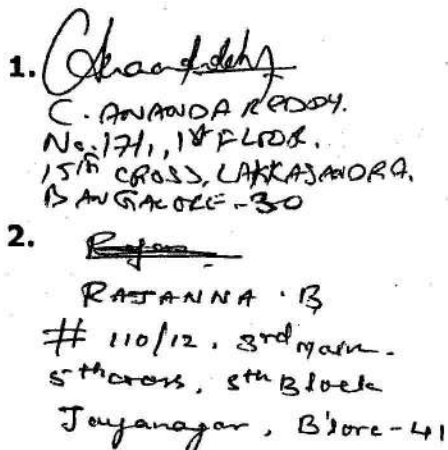 1.
C. ANANDA REDDY.
No. 171, 1st FLOOR,
15th CROSS, LAKKASANDRA,
BANGALORE-30
2.
RAJANNA . B
# 110/12, 3rd main.
5th cross, 5th Block
Jayanagar, B'lore-41